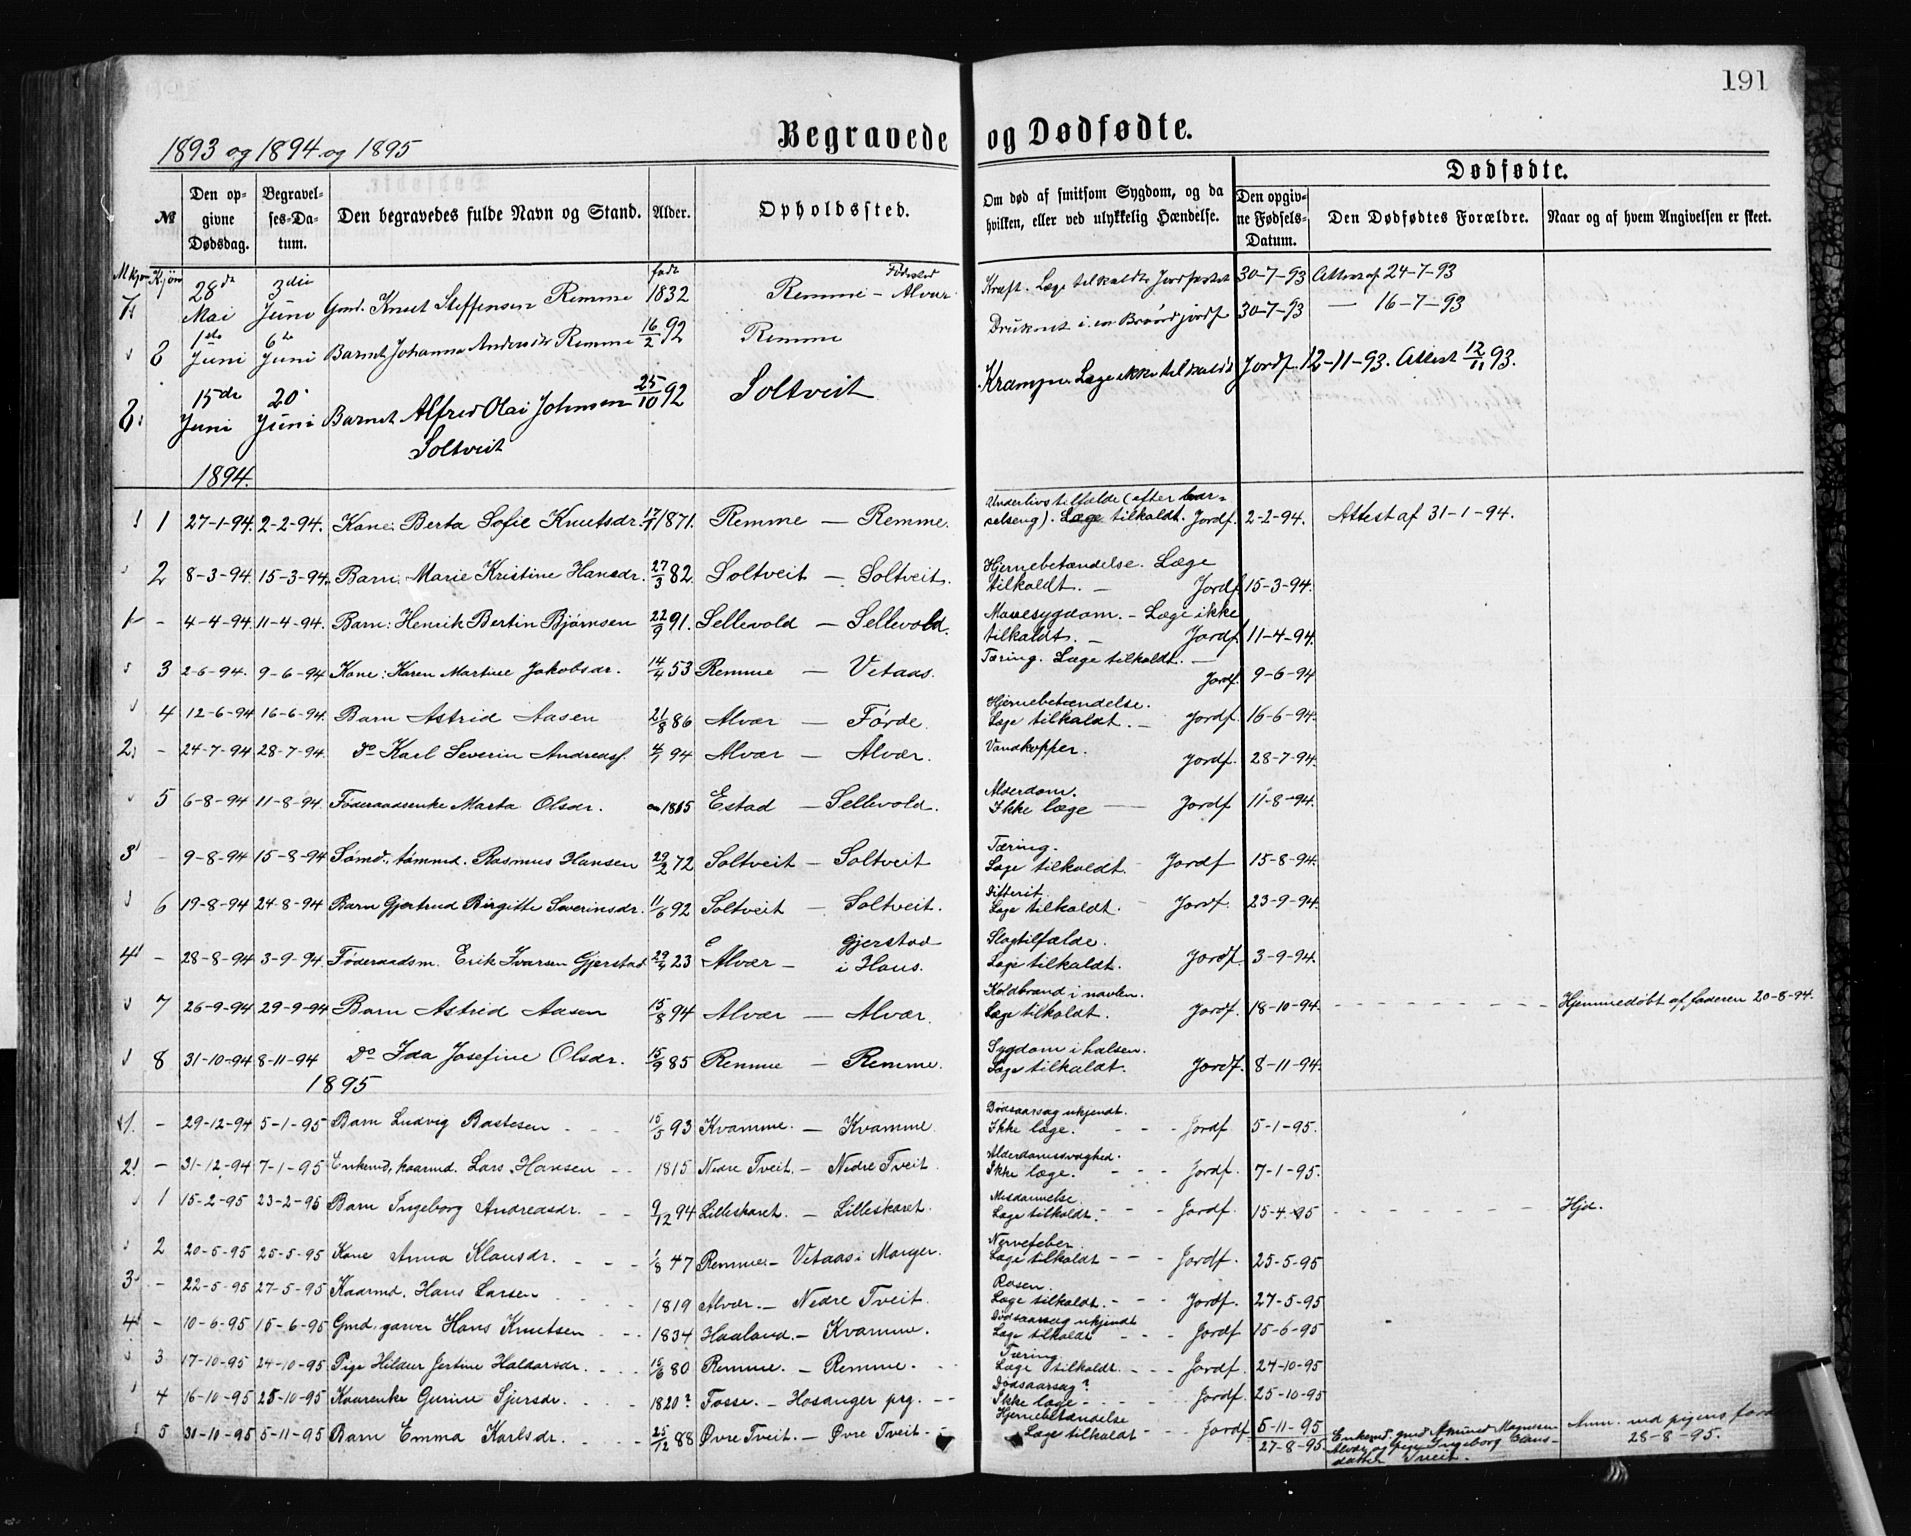 191
1893 og 1894 og 1895
Begravede og Dødfødte.
№
Den opgivne Dødsdag.
Begravelses-Datum.
Den begravedes fulde Navn og Stand.
Alder.
Opholdssted.
Om død af smitsom Sygdom, og da hvilken, eller ved ulykkelig Hændelse.
Dødfødte.
Den opgivne Fødsels-Datum.
Den Dødfødtes Forældre.
Naar og af hvem Angivelsen er skeet.
Mkjøn Kjøn
7. 28de Mai 3die Juni Gmd. Knut Steffensen Remme født 1832 Remme – Fødested Alvær Kræft. Læge tilkaldt. Jordfæstet 30-7-93 Attest af 24-7-93
1ste Juni 6te Juni Barnet Johanna Andersdr Remme 16/2 92 Remme Druknet i en Brønd jordf 30-7-93 — 16-7-93
8. 15de Juni 20 Juni Barnet Alfred Olai Johnsen Soltveit 25/10 92 Soltveit Krampe Læge ikke tilkaldt Jordf. 12-11-93. Attest 12/11 93.
1894.
1 27-1-94. 2-2-94. Kone: Berta Sofie Knutsdr. 1871. Remme — Remme. Underlivstilfælde (efter barselseng). Læge tilkaldt. Jordf. 2-2-94. Attest af 31-1-94.
2 8-3-94. 15-3-94. Barn: Marie Kristine Hansdr. 27/3 82. Soltveit — Soltveit. Hjernebetændelse. Læge tilkaldt. — Jordf. 15-3-94.
1 - 4-4-94. 11-4-94. Barn: Henrik Bertin Bjørnsen 22/9 91. Sellevold — Sellevold. Mavesygdom. - Læge ikke tilkaldt. — Jordf. 11-4-94.
3 2-6-94. 9-6-94 Kone: Karen Martine Jakobsdr. 14/4 53 Remme — Vetaas. Tæring. Læge tilkaldt. — Jordf. 9-6-94
4 12-6-94 16-6-94. Barn Astrid Aasen 21/8 86 Alvær — Førde. Hjernebetændelse. Læge tilkaldt. — Jordf. 16-6-94.
2. - 24-7-94 28-7-94. Do Karl Severin Andreass. 94 Alvær — Alvær. Vandkopper. Jordf. 28-7-94.
5 6-8-94 11-8-94. Føderaadsenke Marta Olsdr. 1815 Estad — Sellevold. Alderdom. Ikke læge — Jordf. 11-8-94.
3 - 9-8-94 15-8-94 Sømd., tømmd. Rasmus Hansen 29/2 72 Soltveit — Soltveit Tæring. Læge tilkaldt. - Jordf 15-8-94.
6 19-8-94 24-8-94 Barn Gjertrud Birgitte Severinsdr. 11/6 92 Soltveit — Soltveit. Difterit. Læge tilkaldt. - Jordf. 23-9-94.
4 - 28-8-94 3-9-94. Føderaadsm. Erik Ivarsen Gjerstad 29/4 23 Alvær — Gjerstad i Haus. Slagtilfælde. Læge tilkaldt. Jordf. 3-9-94.
7 26-9-94 29-9-94 Barn Astrid Aasen 15/8 94 Alvær — Alvær. Koldbrand i navlen. Læge tilkaldt. Jordf. 18-10-94. Hjemmedøbt af faderen 20-8-94.
8 31-10-94 8-11-94 Do Ida Josefine Olsdr. 15/9 85 Remme — Remme. Sygdom i halsen. Læge tilkaldt. Jordf. 8-11-94.
1895
1. - 29-12-94 5-1-95 Barn Ludvig Bastesen 15/5 93 Kvamme. - Kvamme. Dødsaarsag ukjendt. Ikke læge. Jordf 5-1-95.
2. - 31-12-94 7-1-95 Enkemd, kaarmd. Lars Hansen 1815 Nedre Tveit. - Nedre Tveit. Alderdomssvaghed. Ikke læge. Jordf. 7-1-95.
1 15-2-95 23-2-95 Barn Ingeborg Andreasdr. 9/12 94 Lilleskaret. - Lilleskaret. Misdannelse. Læge tilkaldt. Jordf. 15-4-95 Hjd.
2 20-5-95 25-5-95 Kone Anna Klausdr. 1/8 47 Remme. - Vetaas i Manger. Nervefeber. Læge tilkaldt Jordf. 25-5-95
3 - 22-5-95 27-5-95 Kaarmd. Hans Larsen 1819 Alvær. - Nedre Tveit. Rosen. Læge tilkaldt. Jordf. 27-5-95
4 - 10-6-95 15-6-95 Gmd. garver Hans Knutsen 1834 Haaland. - Kvamme. Dødsaarsag ukjendt Læge tilkaldt Jordf 15-6-95
3 17-10-95 24-10-95 Pige Hildur Jertine Haldorsdr. 15/6 80 Remme. - Remme. Tæring. Læge tilkaldt. Jordf. 24-10-95
4 16-10-95 25-10-95 Kaarenke Gurine Sjursdr. 1820? Fosse. - Hosanger prg. Dødsaarsag? Ikke læge Jordf. 25-10-95
5 31-10-95 5-11-95 Barn Emma Karlsdr. 25/12 88 Øvre Tveit. - Øvre Tveit Hjernebetændelse Læge tilkaldt Jordf 5-11-95
27-8-95 Enkemd. gmd Amund Magnesen Alvær og pige Ingeborg Clausdatter Tveit. Anm. ved pigens fader 28-8-95.